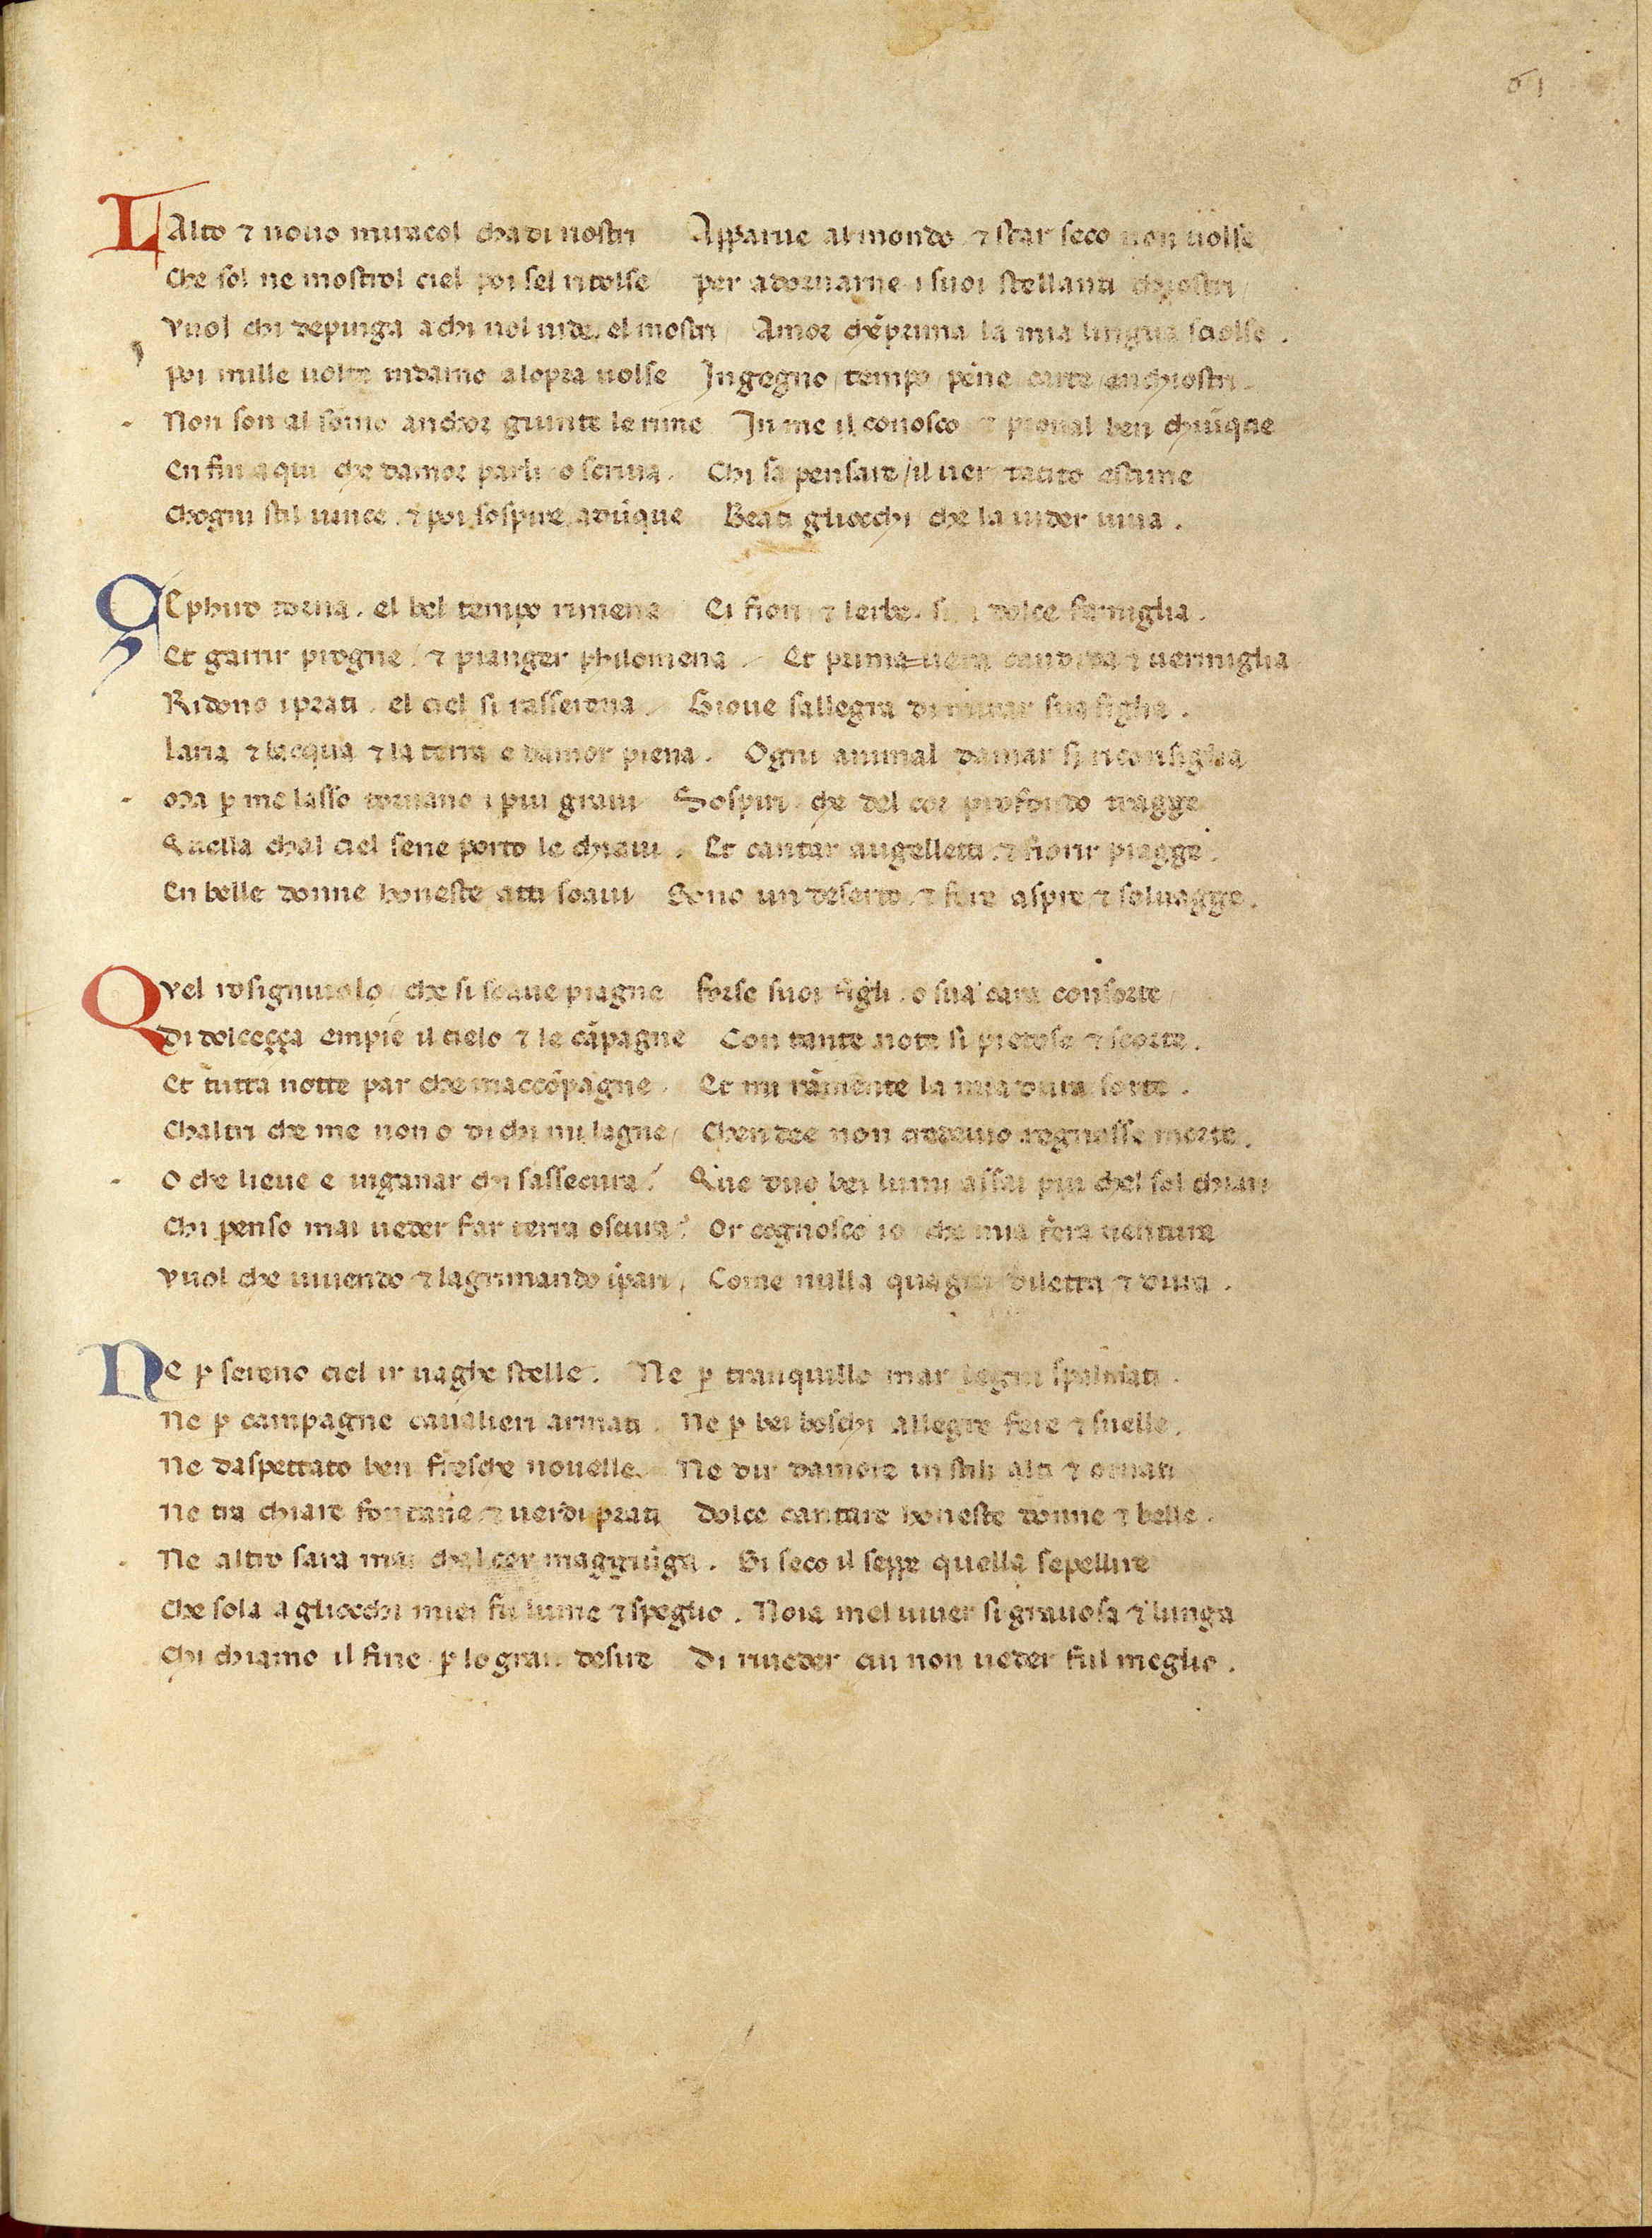 61
LAlto ⁊ nouo miracol cha di nostri Apparue al mondo ⁊ star seco non uolse
Che sol ne mostrol ciel poi sel ritolse per adornarne i suoi stellanti chiostri
Vuol chi depinga a chi nol uide. el mostri Amor chēprima la mia lingua sciolse .
poi mille uolte indarno a lopra uolse Ingegno / tempo / penne carte / enchiostri .
Non son al sōmo anchor giunte le rime In me il conosco ⁊ proual ben chiūque
En fin a qui che damor parli o scriua . Chi sa pensare / il uer tacito estime
Chogni stil uince . ⁊ poi sospire adūque Beati gliocchi che la uider uiua .
ZEphiro torna . el bel tempo rimena Ei fiori ⁊ lerbe . sua dolce famiglia .
Et garrir progne / ⁊ pianger philomena . Et primauera candida ⁊ uermiglia
Ridono i prati . el ciel si rasserena . Gioue sallegra di mirar sua figlia .
Laria ⁊ lacqua ⁊ la terra e damor piena . Ogni animal damar si riconsiglia
ora ꝑ me lasso tornano i piu graui Sospiri . che del cor profondo tragge
Quella chal ciel sene porto le chiaui . Et cantar augelletti . ⁊ fiorir piagge .
En belle donne honeste atti soaui Sono un deserto . ⁊ fere aspre ⁊ seluagge .
QVel rosignuolo che si soaue piagne forse suoi figli . o sua cara consorte
Di dolceçça empie il cielo ⁊ le cāpagne Con tante note si pietose ⁊ scorte .
Et tutta notte par che maccōpagne . Et mi rāmente la mia dura sorte .
Chaltri che me non o di chi mi lagne / Chen dee non credeuio regnasse morte .
O che lieue e inganar chi sassecura ! Que duo bei lumi assai piu chel sol chiari
Chi penso mai ueder far terra oscura ? Or cognosco io che mia fera uentura
Vuol che uiuendo ⁊ lagrimando īpari / Come nulla qua giu diletta ⁊ dura .
NE ꝑ sereno ciel ir uaghe stelle . Ne ꝑ tranquillo mar legni spalmati .
Ne ꝑ campagne caualieri armati . Ne ꝑ bei boschi allegre fere ⁊ snelle .
Ne daspettato ben fresche nouelle . Ne dir damore in stili alti ⁊ ornati
Ne tra chiare fontane ⁊ uerdi prati Dolce cantare honeste donne ⁊ belle .
Ne altro sara mai chal cor maggiūga . Si seco il seppe quella sepellire
Che sola a gliocchi miei fu lume ⁊ speglio . Noia mel uiuer si grauosa ⁊ lunga
Chi chiamo il fine ꝑ lo gran desire Di riueder cui non ueder ful meglio .